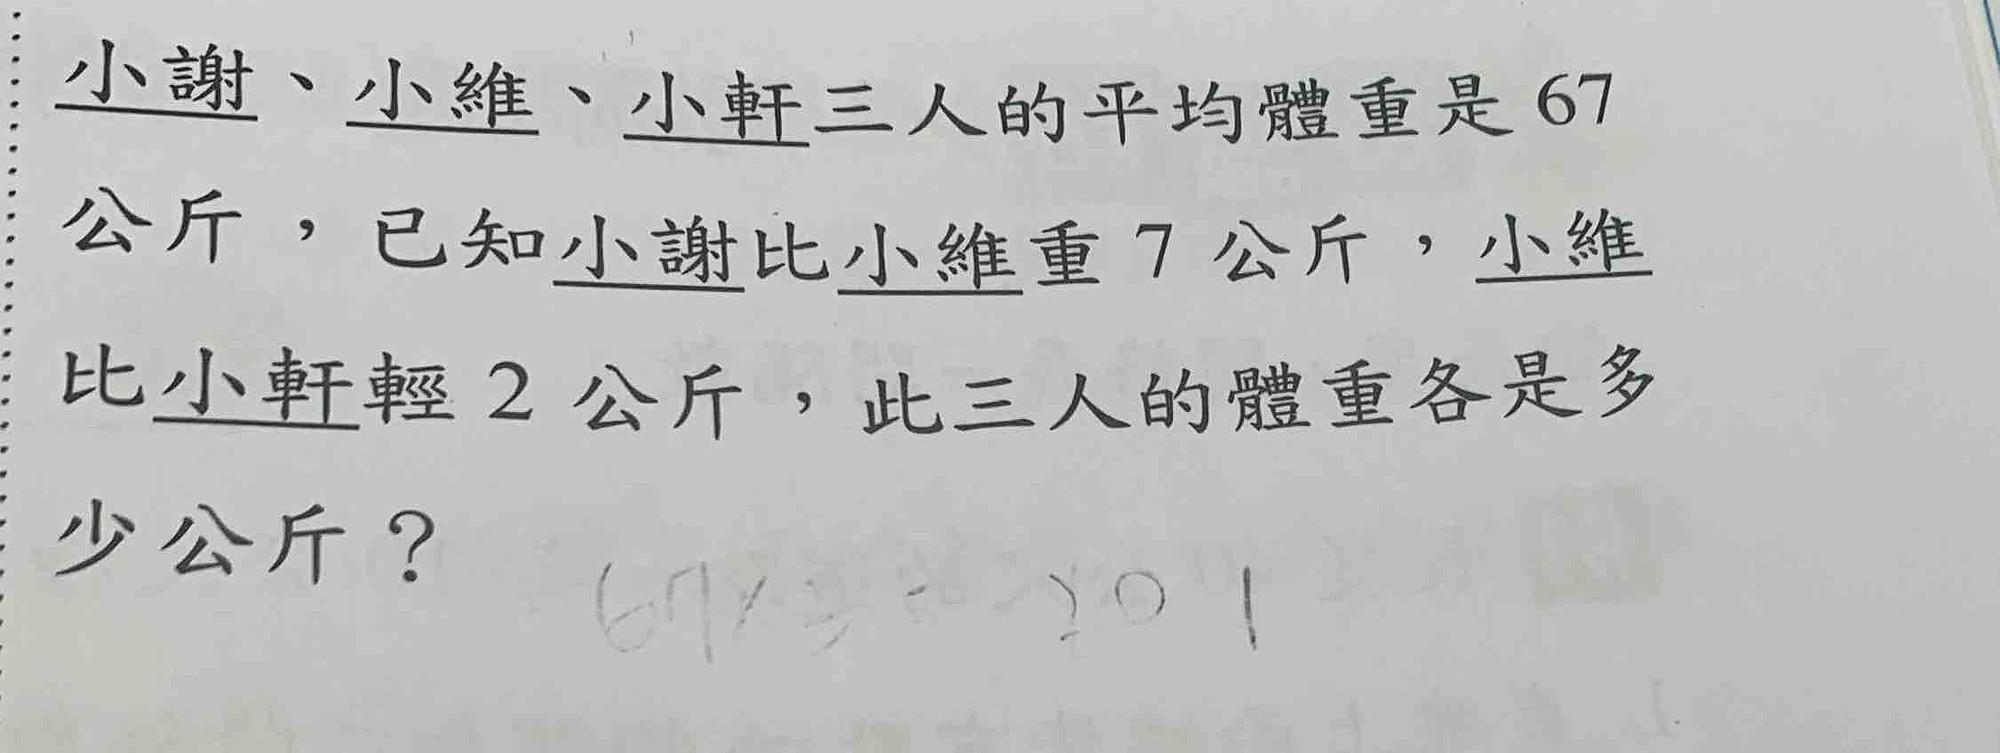 小謝、小維、小軒三人的平均體重是 67
公斤，已知小謝比小維重 7 公斤，小維
比小軒輕 2 公斤，此三人的體重各是多
少公斤？
67×3=201